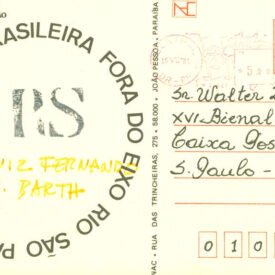 BRASILEIRA FORA DO EIXO RIO SÃO PA
RS
UIZ FERNAND
BARTH
NAC • RUA DAS TRINCHEIRAS, 275 • 58.000 • JOÃO PESSOA, PARAÍBA
Sr. Walter
XVI Bienal
Caixa Pos
S. Paulo -
0 1 0